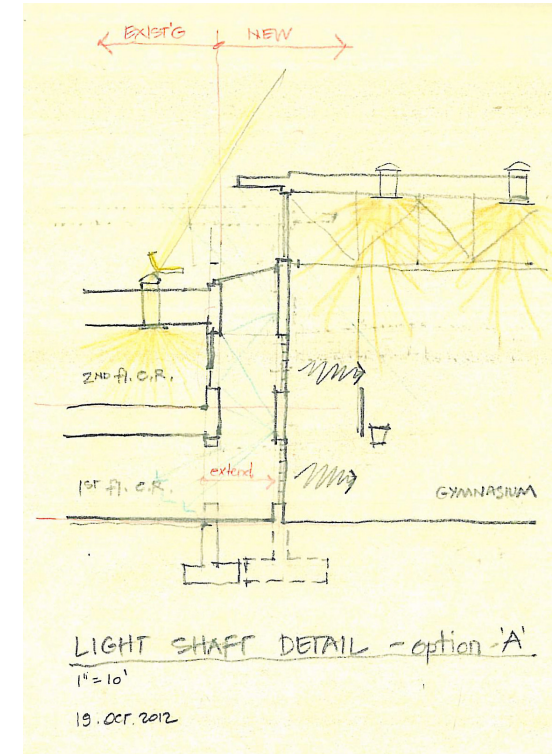 EXIST'G NEW
2ND fl. C.R.
extend
1ST fl. C.R.
GYMNASIUM
LIGHT SHAFT DETAIL - option 'A'
1" = 10'
19. OCT. 2012